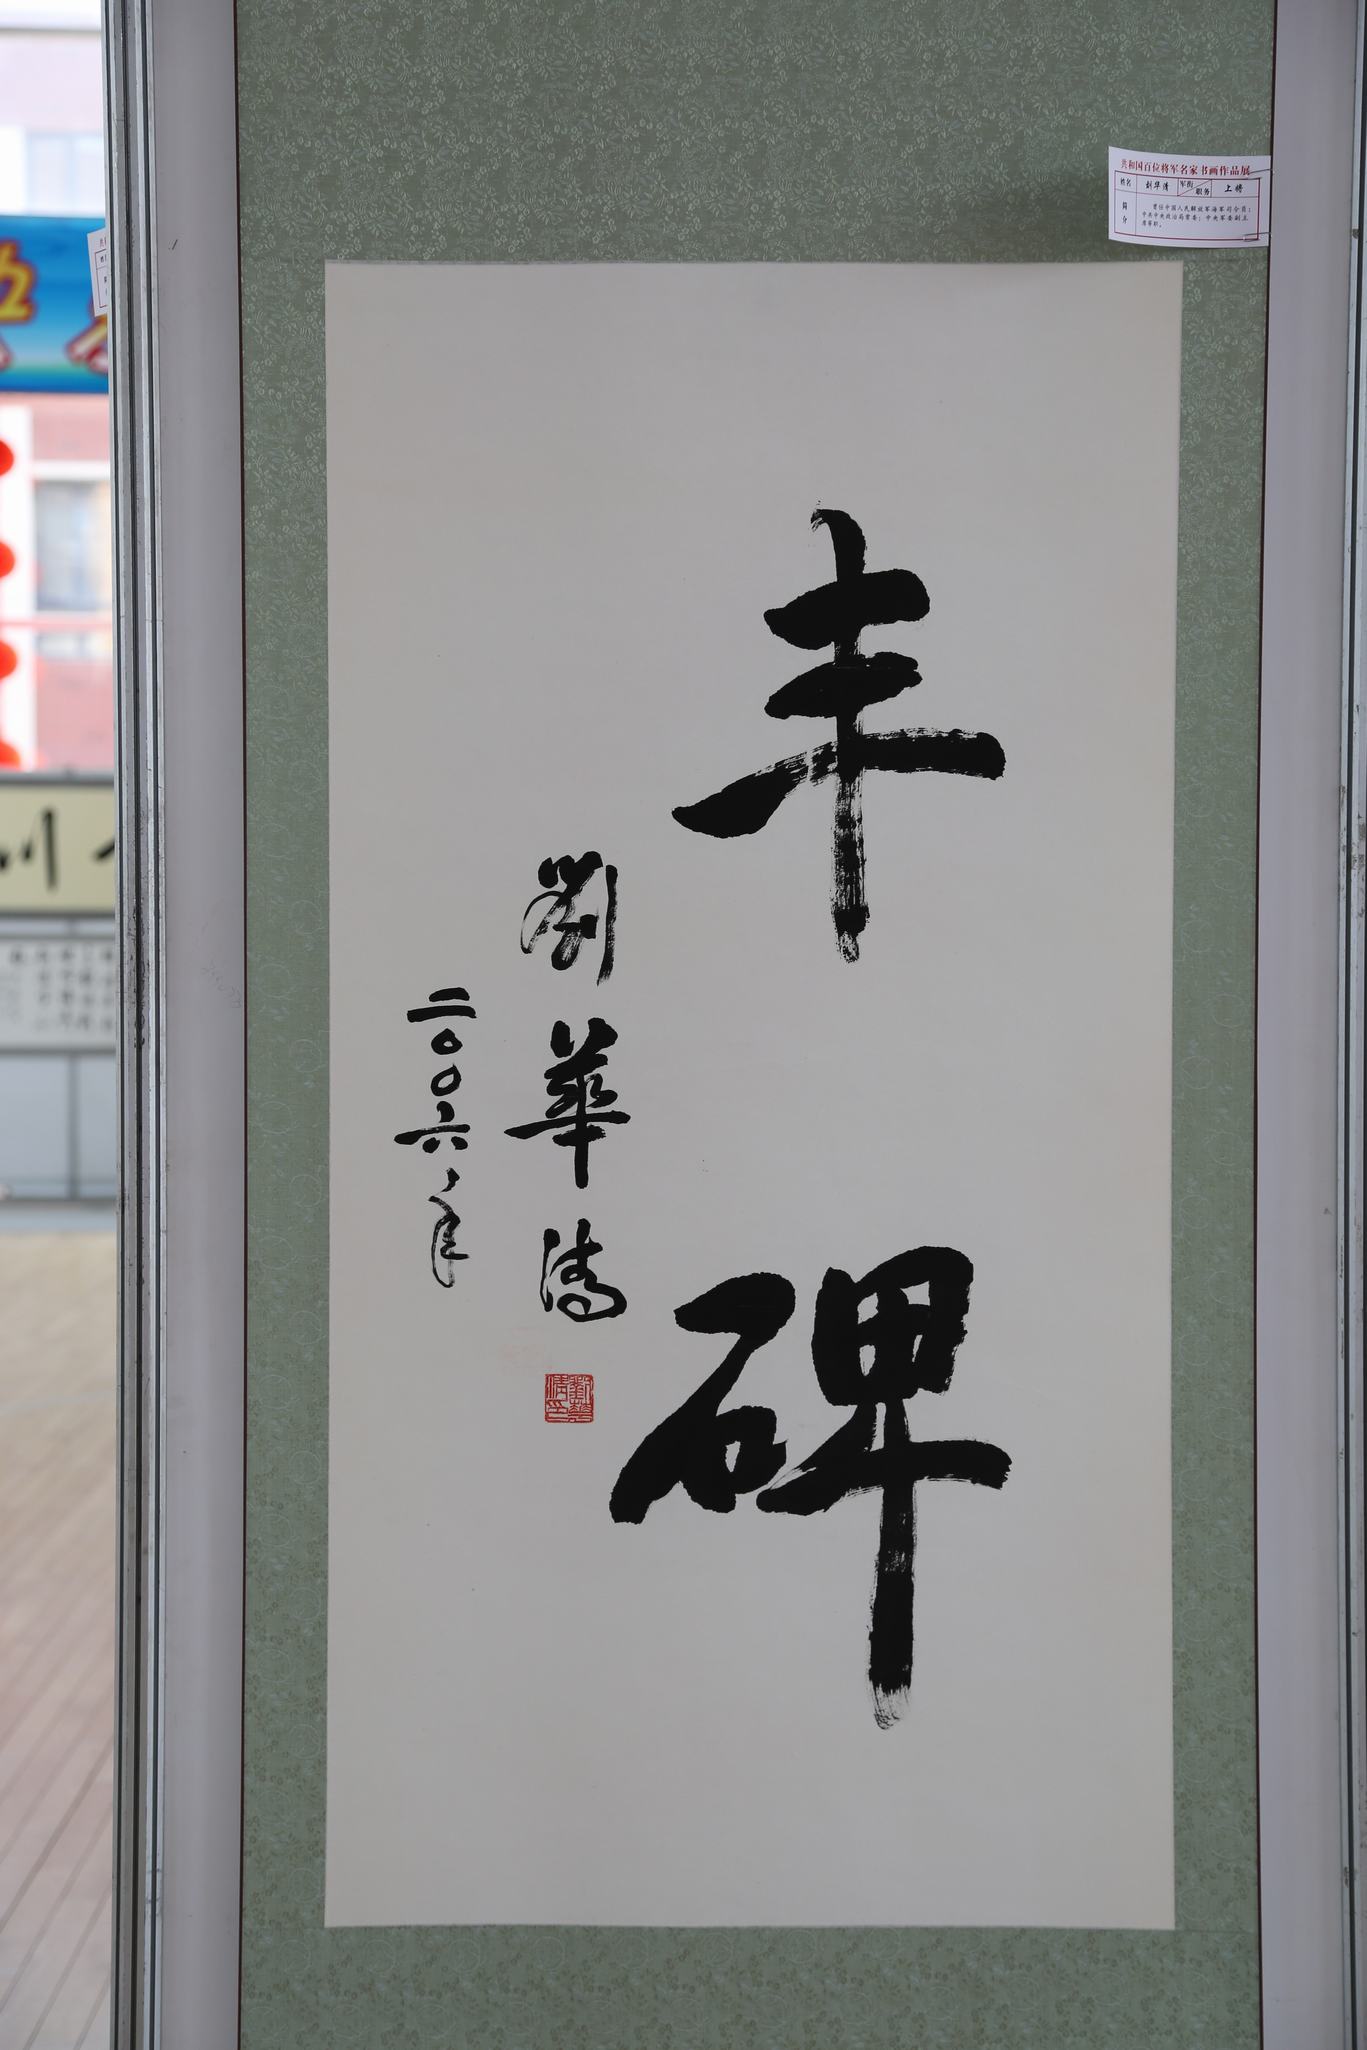 共和国百位将军名家书画作品展
姓名 刘华清 军衔 职务 上将
简介 曾任中国人民解放军海军司令员；
中共中央政治局常委；中央军委副主
席等职。
丰碑
劉華清
二〇〇六年
劉華清印